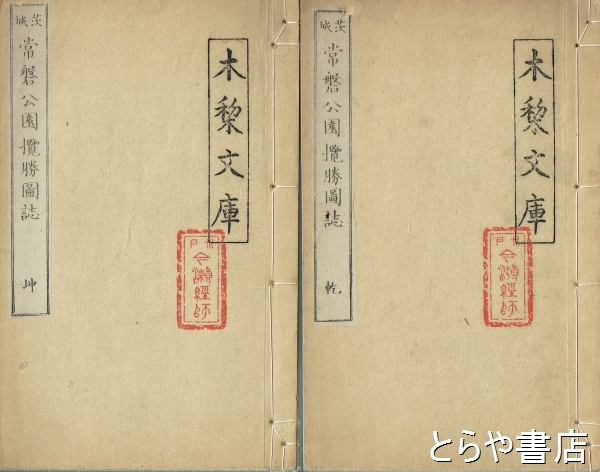 茨城
常磐公園攬勝圖誌
乾
木黎文庫
今瀬經師
茨城
常磐公園攬勝圖誌
坤
木黎文庫
今瀬經師
とらや書店